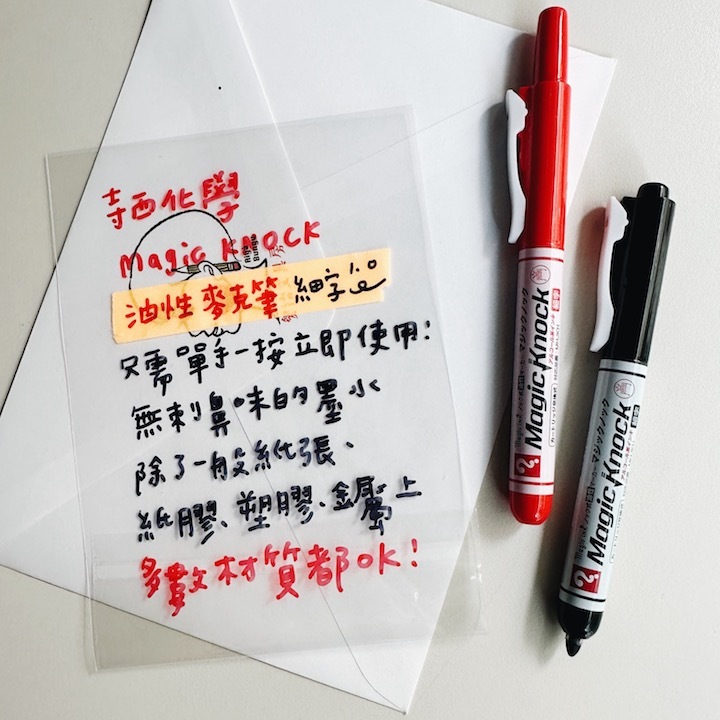 寺西化學
Magic KNOCK
油性麥克筆 細字
只需單手一按立即使用!
無刺鼻味的墨水
除了一般紙張、
紙膠、塑膠、金屬上
多數材質都OK!
Magic Knock
マジックノック
細字
Magic Knock
マジックノック
細字